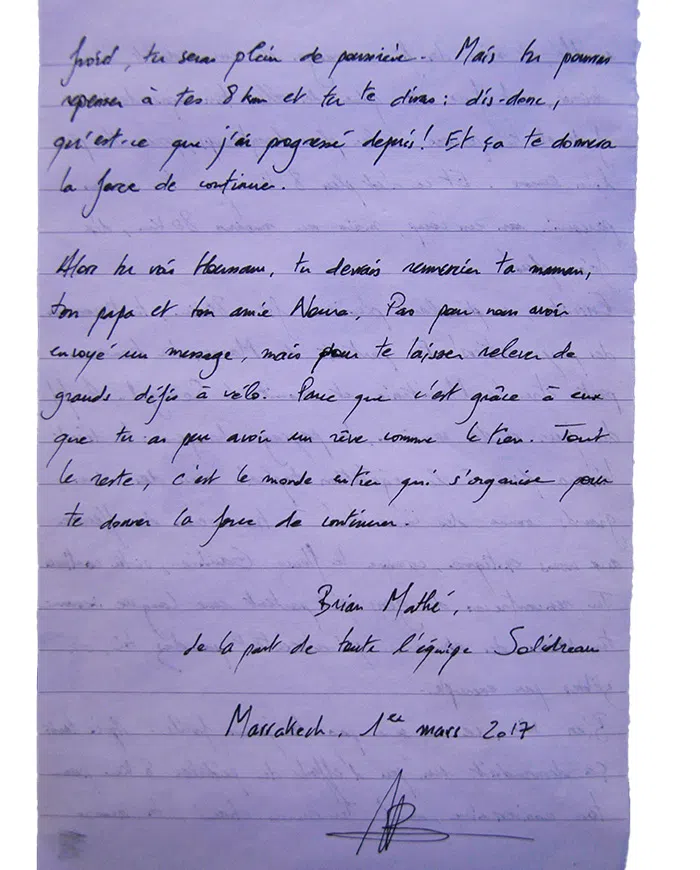 froid, tu seras plein de poussière. Mais tu pourras
repenser à tes 8 km et tu te diras : dis-donc,
qu'est-ce que j'ai progressé depuis ! Et ça te donnera
la force de continuer.
Alors tu vois Houssam, tu devrais remercier ta maman,
ton papa et ton amie Noura. Pas pour nous avoir
envoyé un message, mais pour te laisser relever de
grands défis à vélo. Parce que c'est grâce à eux
que tu as peu avoir un rêve comme le tien. Tout
le reste, c'est le monde entier qui s'organise pour
te donner la force de continuer.
Brian Mathé,
de la part de toute l'équipe Solidreau
Marrakech, 1er mars 2017